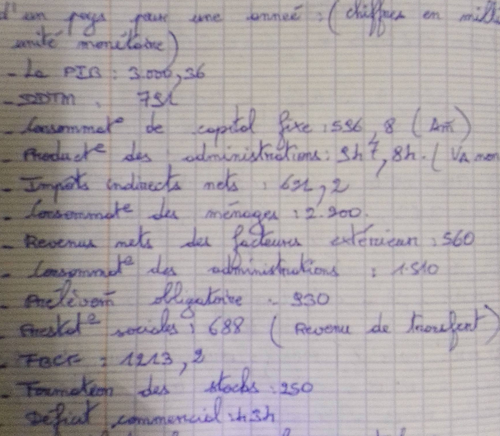 d'un pays pour une année : (chiffres en mill
unité monétaire)
- Le PIB : 3.000,36
- DDTM : 791
- Consommat° de capital fixe : 596,8 (Am)
- Product° des administrations : 947,84. (VA mon
- Impôts indirects nets : 691,2
- Consommat° des ménages : 2.200.
- Revenus nets des facteurs extérieur : 560
- Consommat° des administrations : 1510
- Prélèvem obligatoire : 930
- Prestat° sociales : 688 (Revenu de transfert)
- FBCF : 1213,2
- Formation des stocks : 250
Déficit commercial : 434